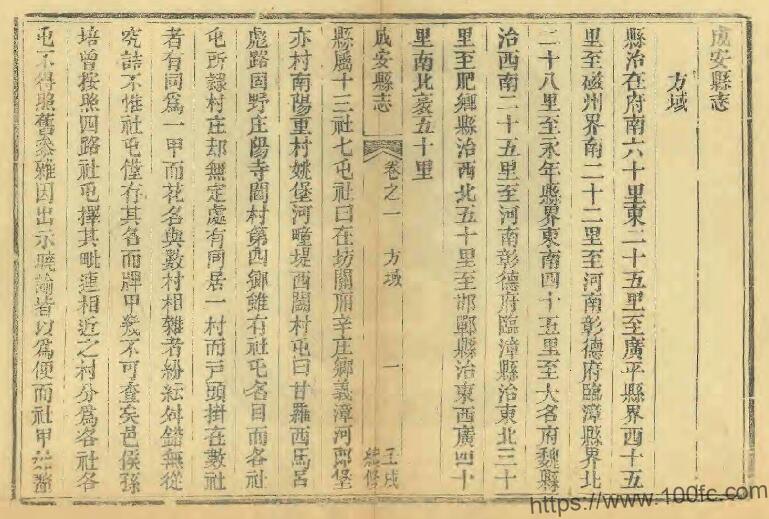 成安縣志
方域
縣治在府南六十里東二十五里至廣平縣界西十五
里至磁州界南二十二里至河南彰德府臨漳縣界北
二十八里至永年縣界東南四十五里至大名府魏縣
治西南二十五里至河南彰德府臨漳縣治東北三十
里至肥鄉縣治西北五十里至邯鄲縣治東西廣四十
里南北袤五十里
成安縣志 卷之一 方域 一 壬戌續修
縣屬十三社七屯社曰在坊關廂辛庄鄉義漳河郎堡
亦村南陽重村姚堡河疃堤西閻村屯曰甘羅西馬呂
彪路固野庄陽寺閻村第四鄉雖有社屯名目而各社
屯所隸村庄却無定處有同居一村而戸頭掛在數社
者有同爲一甲而花名與數村相雜者紛紜舛錯無從
究詰不惟社屯僅存其名而牌甲幾不可查矣邑侯孫
培曾按照四路社屯擇其毗連相近之村分爲各社各
屯不得照舊參雜因出示曉諭皆以爲便而社甲
https://www.100fc.com